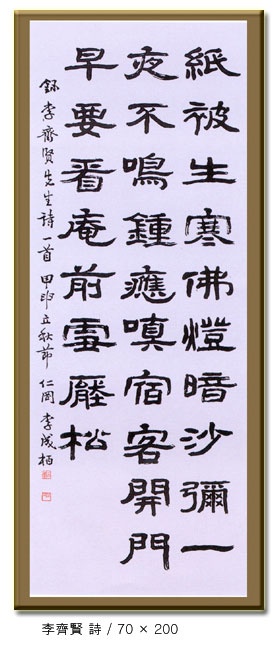 紙被生寒佛燈暗沙彌一
夜不鳴鍾應嗔宿客開門
早要看庵前雪壓松
錄李齊賢先生詩一首 甲申立秋節 仁岡 李成栢
李齊賢 詩 / 70 × 200